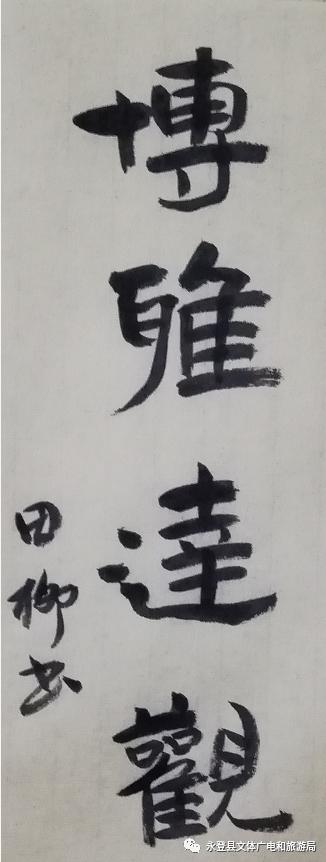 博雅達觀
田柳书
永登县文体广电和旅游局